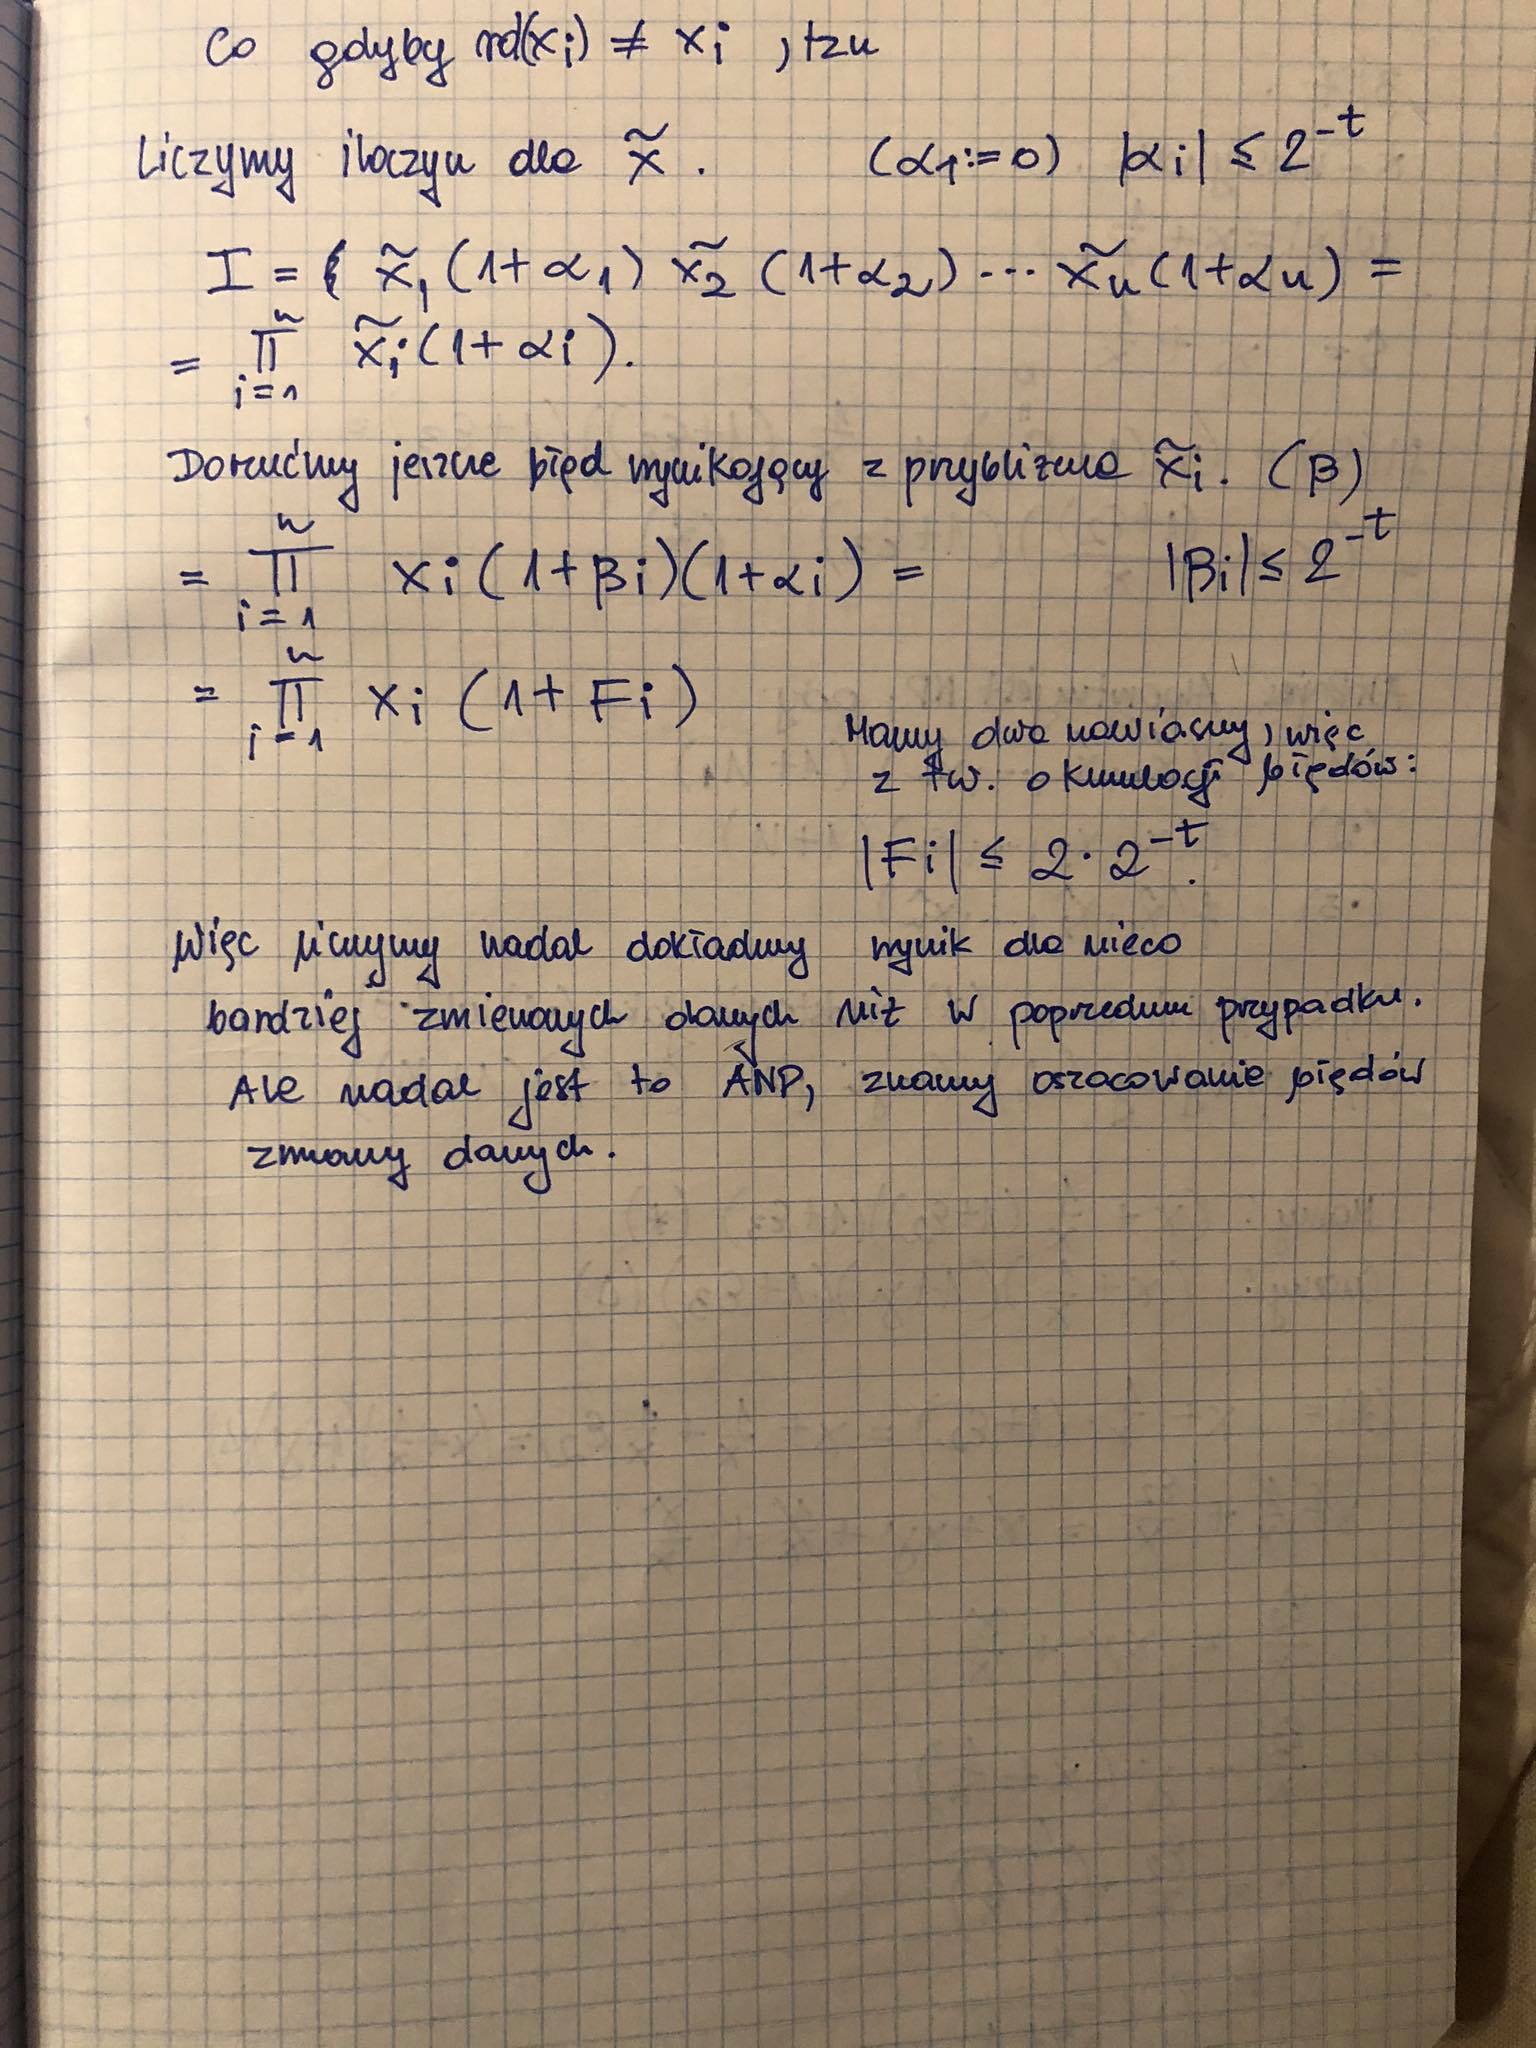 Co gdyby rd(xi) ≠ xi , tzn
Liczymy iloczyn dla x̃ . (α1:=0) |αi| ≤ 2^-t
I = x̃1 (1+α1) x̃2 (1+α2) ... x̃n (1+αn) =
= ∏_{i=1}^{n} x̃i (1+αi).
Dorzućmy jeszcze błąd wynikający z przybliżenia x̃i. (β)
= ∏_{i=1}^{n} xi (1+βi)(1+αi) = |βi| ≤ 2^-t
= ∏_{i=1}^{n} xi (1+Fi)
Mamy dwa nawiasy, więc
z tw. o kumulacji błędów:
|Fi| ≤ 2·2^-t.
Więc liczymy nadal dokładny wynik dla nieco
bardziej zmienionych danych niż w poprzednim przypadku.
Ale nadal jest to ANP, znamy oszacowanie błędów
zmiany danych.